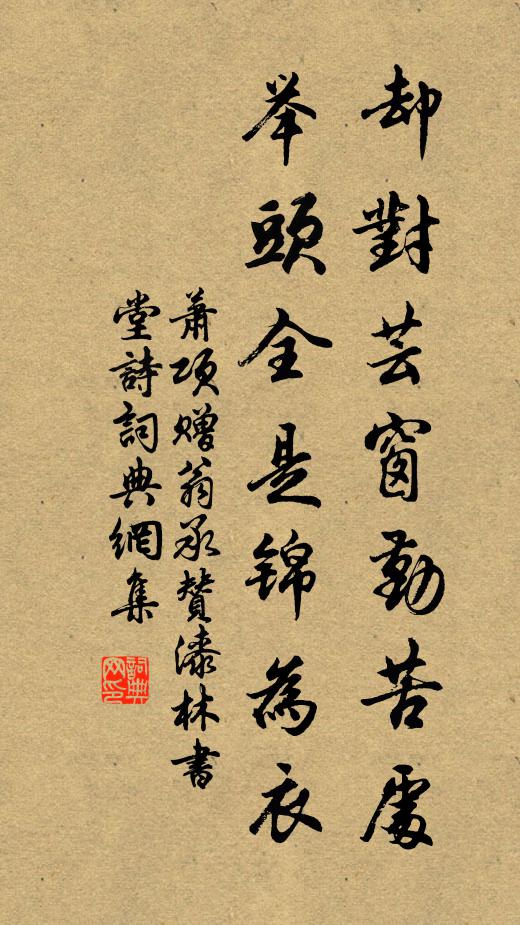 却對芸窗勤苦處
举頭全是锦為衣
萧项赠翁承贊漆林書
堂詩詞典網集
詞典
网印